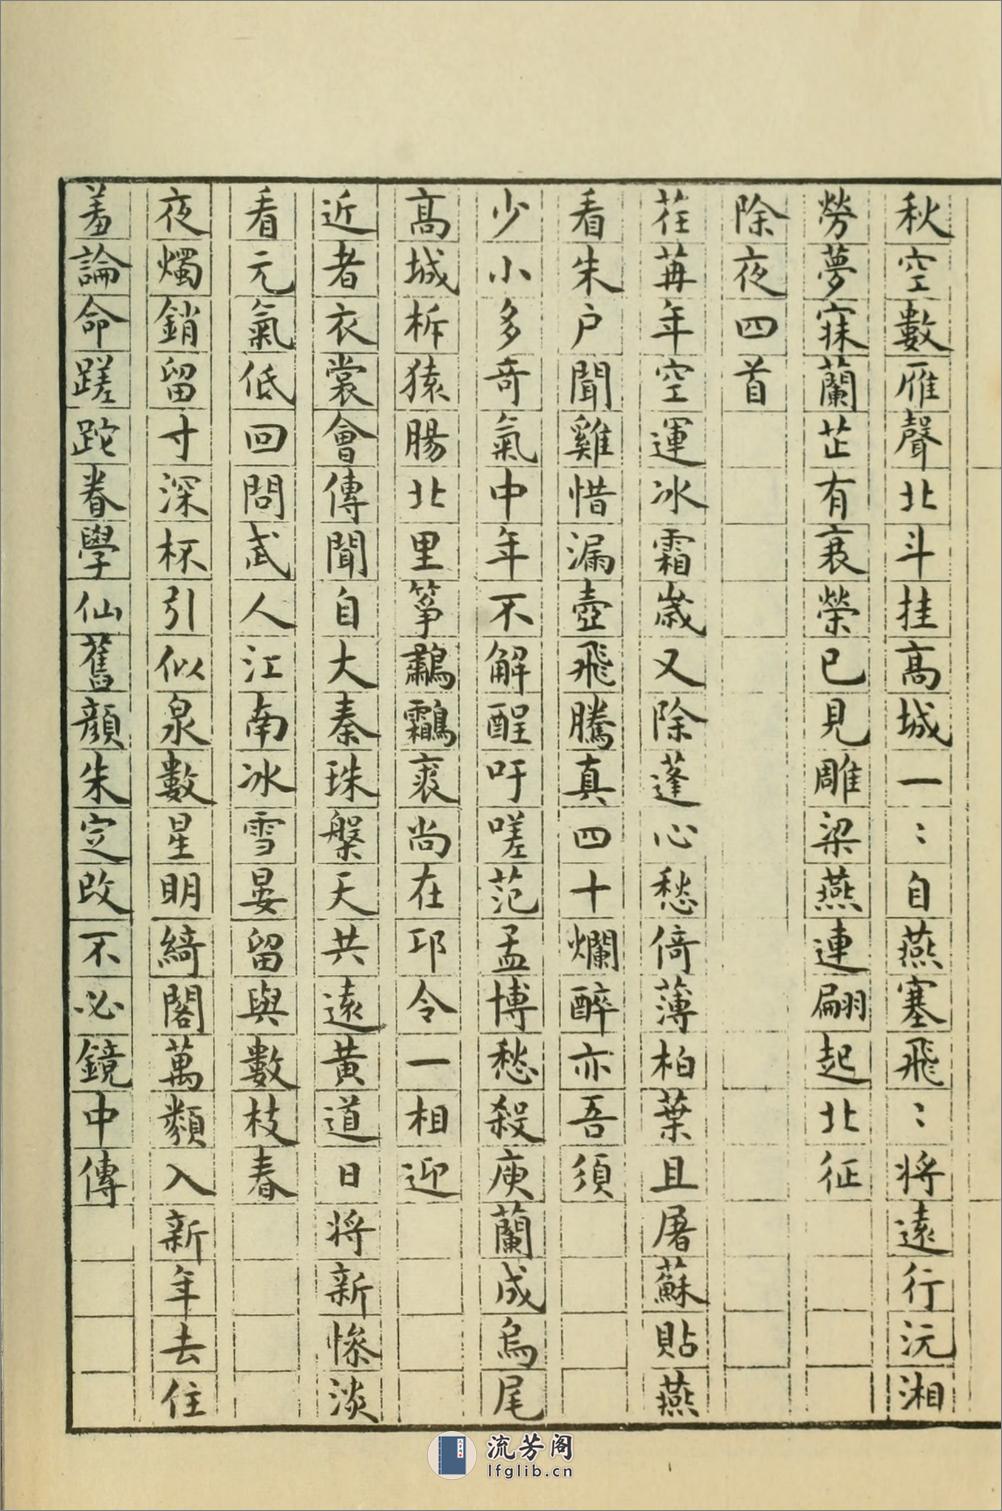 秋空數雁聲北斗挂高城一〻自燕塞飛〻將遠行沅湘
勞夢寐蘭芷有衰榮已見雕梁燕連翩起北征
除夜四首
荏苒年空運冰霜歲又除蓬心愁倚薄柏葉且屠蘇貼燕
看朱户聞雞惜漏壺飛騰真四十爛醉亦吾須
少小多奇氣中年不解酲吁嗟范孟博愁殺庾蘭成烏尾
高城柝猿腸北里箏鷫鸘裘尚在邛令一相迎
近者衣裳會傳聞自大秦珠槃天共遠黃道日將新慘淡
看元氣低回問武人江南冰雪晏留與數枝春
夜燭銷留寸深杯引似泉數星明綺閣萬纇入新年去住
羞論命蹉跎眷學仙舊顔朱定改不必鏡中傳
流芳阁
lfglib.cn